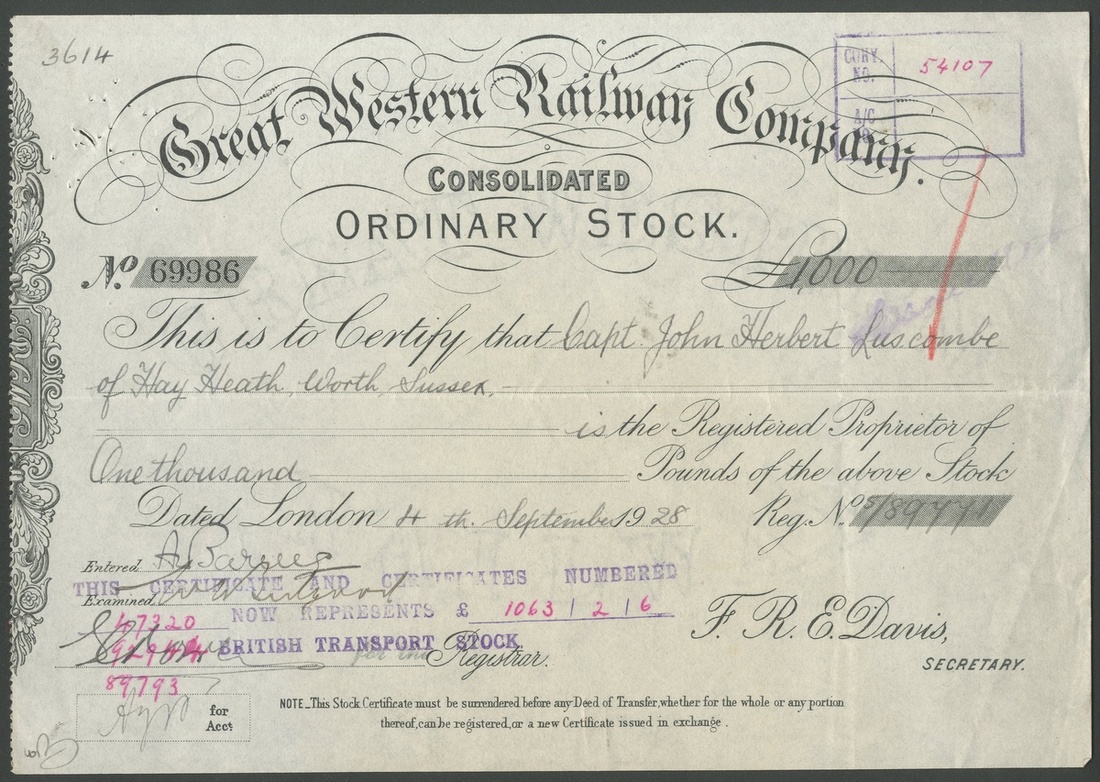 3614
CONV. NO. 54107
A/C
Great Western Railway Company.
CONSOLIDATED
ORDINARY STOCK.
No. 69986 £1,000
This is to Certify that Capt. John Herbert Luscombe
of Hay Heath, Worth, Sussex,
is the Registered Proprietor of
One thousand Pounds of the above Stock
Dated London 4 th. September 1928 Reg. No. S/89771
Entered
THIS CERTIFICATE AND CERTIFICATES NUMBERED
Examined
67320 NOW REPRESENTS £ 1063 | 2 | 6
BRITISH TRANSPORT STOCK.
F. R. E. Davis,
for the Registrar.
SECRETARY.
89793
for
Acct.
NOTE_This Stock Certificate must be surrendered before any Deed of Transfer, whether for the whole or any portion
thereof, can be registered, or a new Certificate issued in exchange.